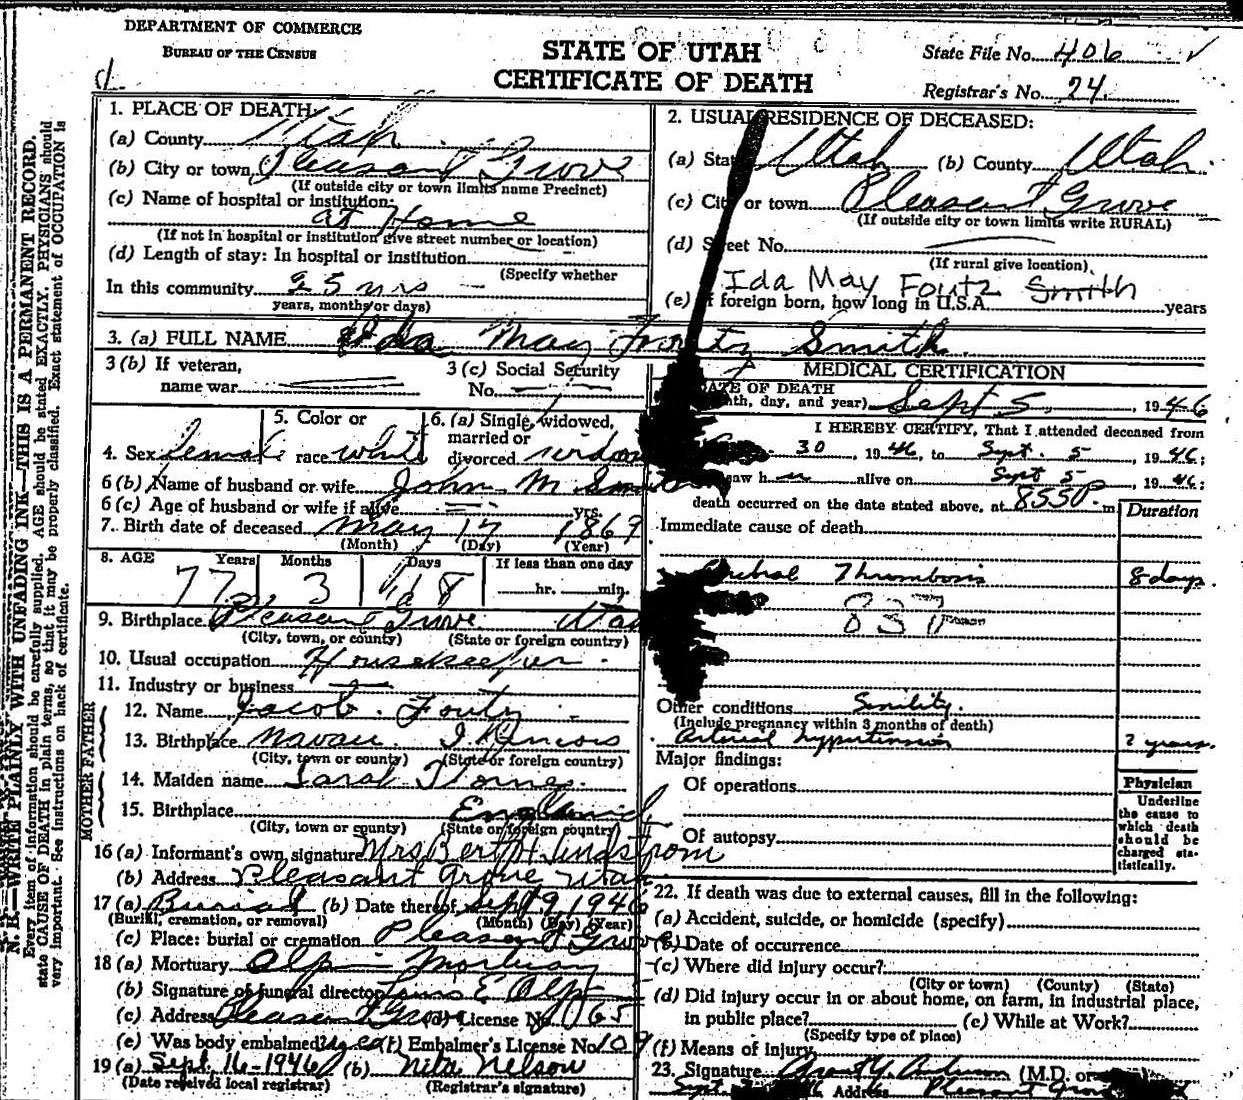 DEPARTMENT OF COMMERCE
BUREAU OF THE CENSUS
STATE OF UTAH
CERTIFICATE OF DEATH
State File No. 406
Registrar's No. 24
N. B.—WRITE PLAINLY WITH UNFADING INK—THIS IS A PERMANENT RECORD.
Every item of information should be carefully supplied. AGE should be stated EXACTLY. PHYSICIANS should
state CAUSE OF DEATH in plain terms, so that it may be properly classified. Exact statement of OCCUPATION is
very important. See instructions on back of certificate.
1. PLACE OF DEATH:
(a) County Utah
(b) City or town Pleasant Grove
(If outside city or town limits name Precinct)
(c) Name of hospital or institution:
at Home
(If not in hospital or institution give street number or location)
(d) Length of stay: In hospital or institution
(Specify whether
In this community 25 yrs
years, months or days)
2. USUAL RESIDENCE OF DECEASED:
(a) State Utah (b) County Utah
(c) City or town Pleasant Grove
(If outside city or town limits write RURAL)
(d) Street No.
(If rural give location)
Ida May Foutz Smith
(e) If foreign born, how long in U.S.A. years
3. (a) FULL NAME Ida May Foutz Smith
3 (b) If veteran,
name war
3 (c) Social Security
No.
4. Sex female
5. Color or
race white
6. (a) Single, widowed,
married or
divorced widow
6 (b) Name of husband or wife John M Smith
6 (c) Age of husband or wife if alive yrs.
7. Birth date of deceased May 17 1869
(Month) (Day) (Year)
8. AGE Years Months Days If less than one day
77 3 18 hr. min.
9. Birthplace Pleasant Grove Utah
(City, town, or county) (State or foreign country)
10. Usual occupation Housekeeper
11. Industry or business
FATHER
12. Name Jacob Foutz
13. Birthplace Nauvoo Illinois
(City, town or county) (State or foreign country)
MOTHER
14. Maiden name Sarah
15. Birthplace England
(City, town or county) (State or foreign country)
16 (a) Informant's own signature Mrs Bert H Lindstrom
(b) Address Pleasant Grove Utah
17 (a) Burial (b) Date thereof Sept 9 1946
(Burial, cremation, or removal) (Month) (Day) (Year)
(c) Place: burial or cremation Pleasant Grove
18 (a) Mortuary Mortuary
(b) Signature of funeral director
(c) Address Pleasant Grove (d) License No.
(e) Was body embalmed (f) Embalmer's License No. 109
19 (a) Sept. 16-1946 (b) Nita Nelson
(Date received local registrar) (Registrar's signature)
MEDICAL CERTIFICATION
DATE OF DEATH
(month, day, and year) Sept 5, 1946
I HEREBY CERTIFY, That I attended deceased from
30, 1946, to Sept. 5, 1946;
saw h alive on Sept 5, 1946;
death occurred on the date stated above, at m
Duration
Immediate cause of death
Cerebral Thrombosis 8 days.
837
Other conditions Senility.
(Include pregnancy within 3 months of death)
Arterial hypertension 2 years.
Major findings:
Of operations
Of autopsy
Physician
Underline
the cause to
which death
should be
charged sta-
tistically.
22. If death was due to external causes, fill in the following:
(a) Accident, suicide, or homicide (specify)
(b) Date of occurrence
(c) Where did injury occur?
(City or town) (County) (State)
(d) Did injury occur in or about home, on farm, in industrial place,
in public place? (e) While at Work?
(Specify type of place)
(f) Means of injury
23. Signature Grant Y. (M.D. or
Sept. Address Pleasant Grove